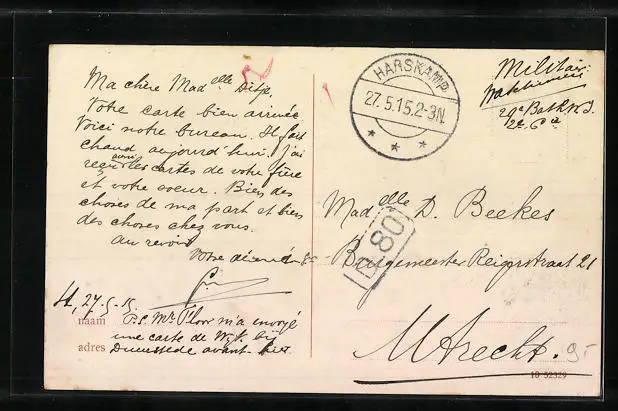 Ma chère Mad elle Ditje.
Votre carte bien arrivée
Voici notre bureau. Il fait
chaud aujourd'hui. J'ai
reçu aussi les cartes de votre frère
et votre soeur. Bien des
choses de ma part et bien
des choses chez vous.
au revoir
Votre
H, 27-5-15.
naam
P.S. Mr. Floor m'a envoyé
une carte de Wijk bij
adres
Duurstede avant-hier
HARSKAMP
27.5.15.2-3N.
Militair
2e Cie
Mad elle D. Beekes
Burgemeester Reigerstraat 21
80
Utrecht.
9-
10 52329